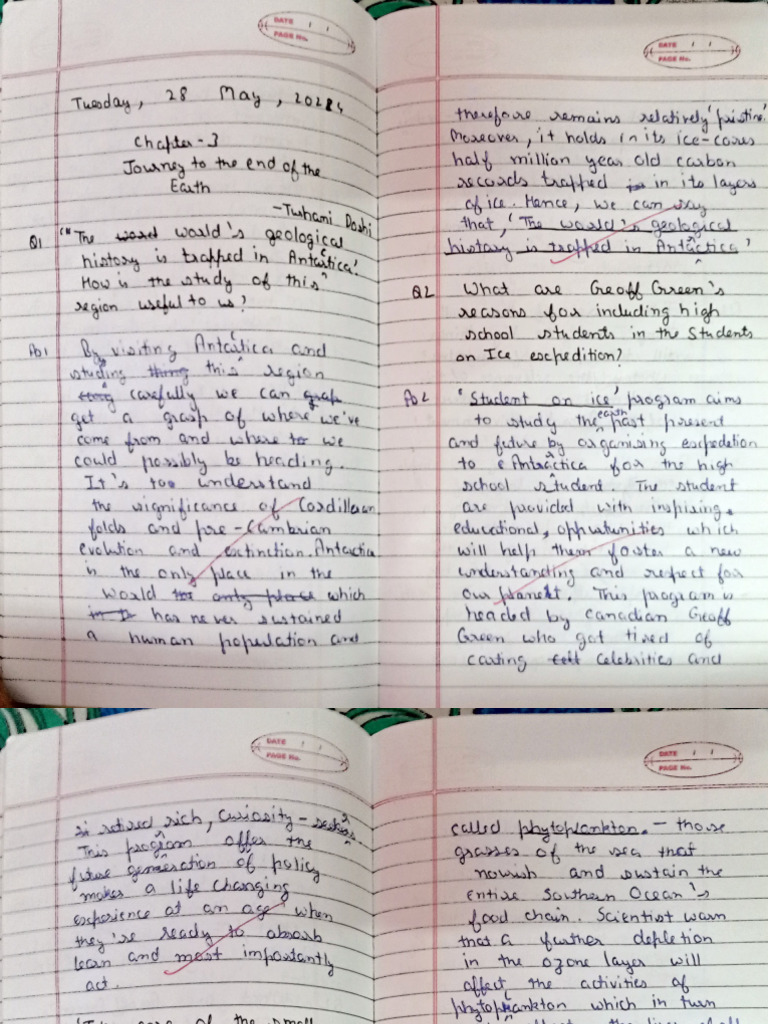 DATE / /
PAGE No.
Tuesday, 28 May, 2024
Chapter-3
Journey to the end of the
Earth
-Tushani Doshi
Q1 "The word world's geological
history is trapped in Antarctica'.
How is the study of this
region useful to us?
By visiting Antarctica and
studing thing this region
carefully we can grap
get a grasp of where we've
come from and where to we
could possibly be heading.
It's too understand
the significance of Cordilleran
folds and pre-Cambrian
evolution and extinction. Antarctica
is the only place in the
world the only place which
in It has never sustained
a human population and
DATE / /
PAGE No.
therefore remains relatively 'pristine'.
Moreover, it holds in its ice-cores
half million year old carbon
records trapped in in its layers
of ice. Hence, we can say
that, 'The world's geological
history is trapped in Antarctica'
Q2 What are Geoff Green's
reasons for including high
school students in the Students
on Ice escpedition?
'Student on ice' program aims
to study the earth past present
and future by organising escpedetion
to Antarctica for the high
school student. The student
are provided with inspiring
educational, oppurtunities which
will help them foster a new
understanding and respect for
our planet. This program is
headed by canadian Geoff
Green who got tired of
carting celebrities and
DATE / /
PAGE No.
retired rich, curiosity-seekers.
This program offer the
future generation of policy
makes a life changing
experience at an age when
they're ready to absorb
learn and most importantly
act.
of the small
DATE / /
PAGE No.
called phytoplankton. - those
grasses of the sea that
nourish and sustain the
entire Southern Ocean's
food chain. Scientist warn
that a further depletion
in the ozone layer will
affect the activities of
phytoplankton which in turn